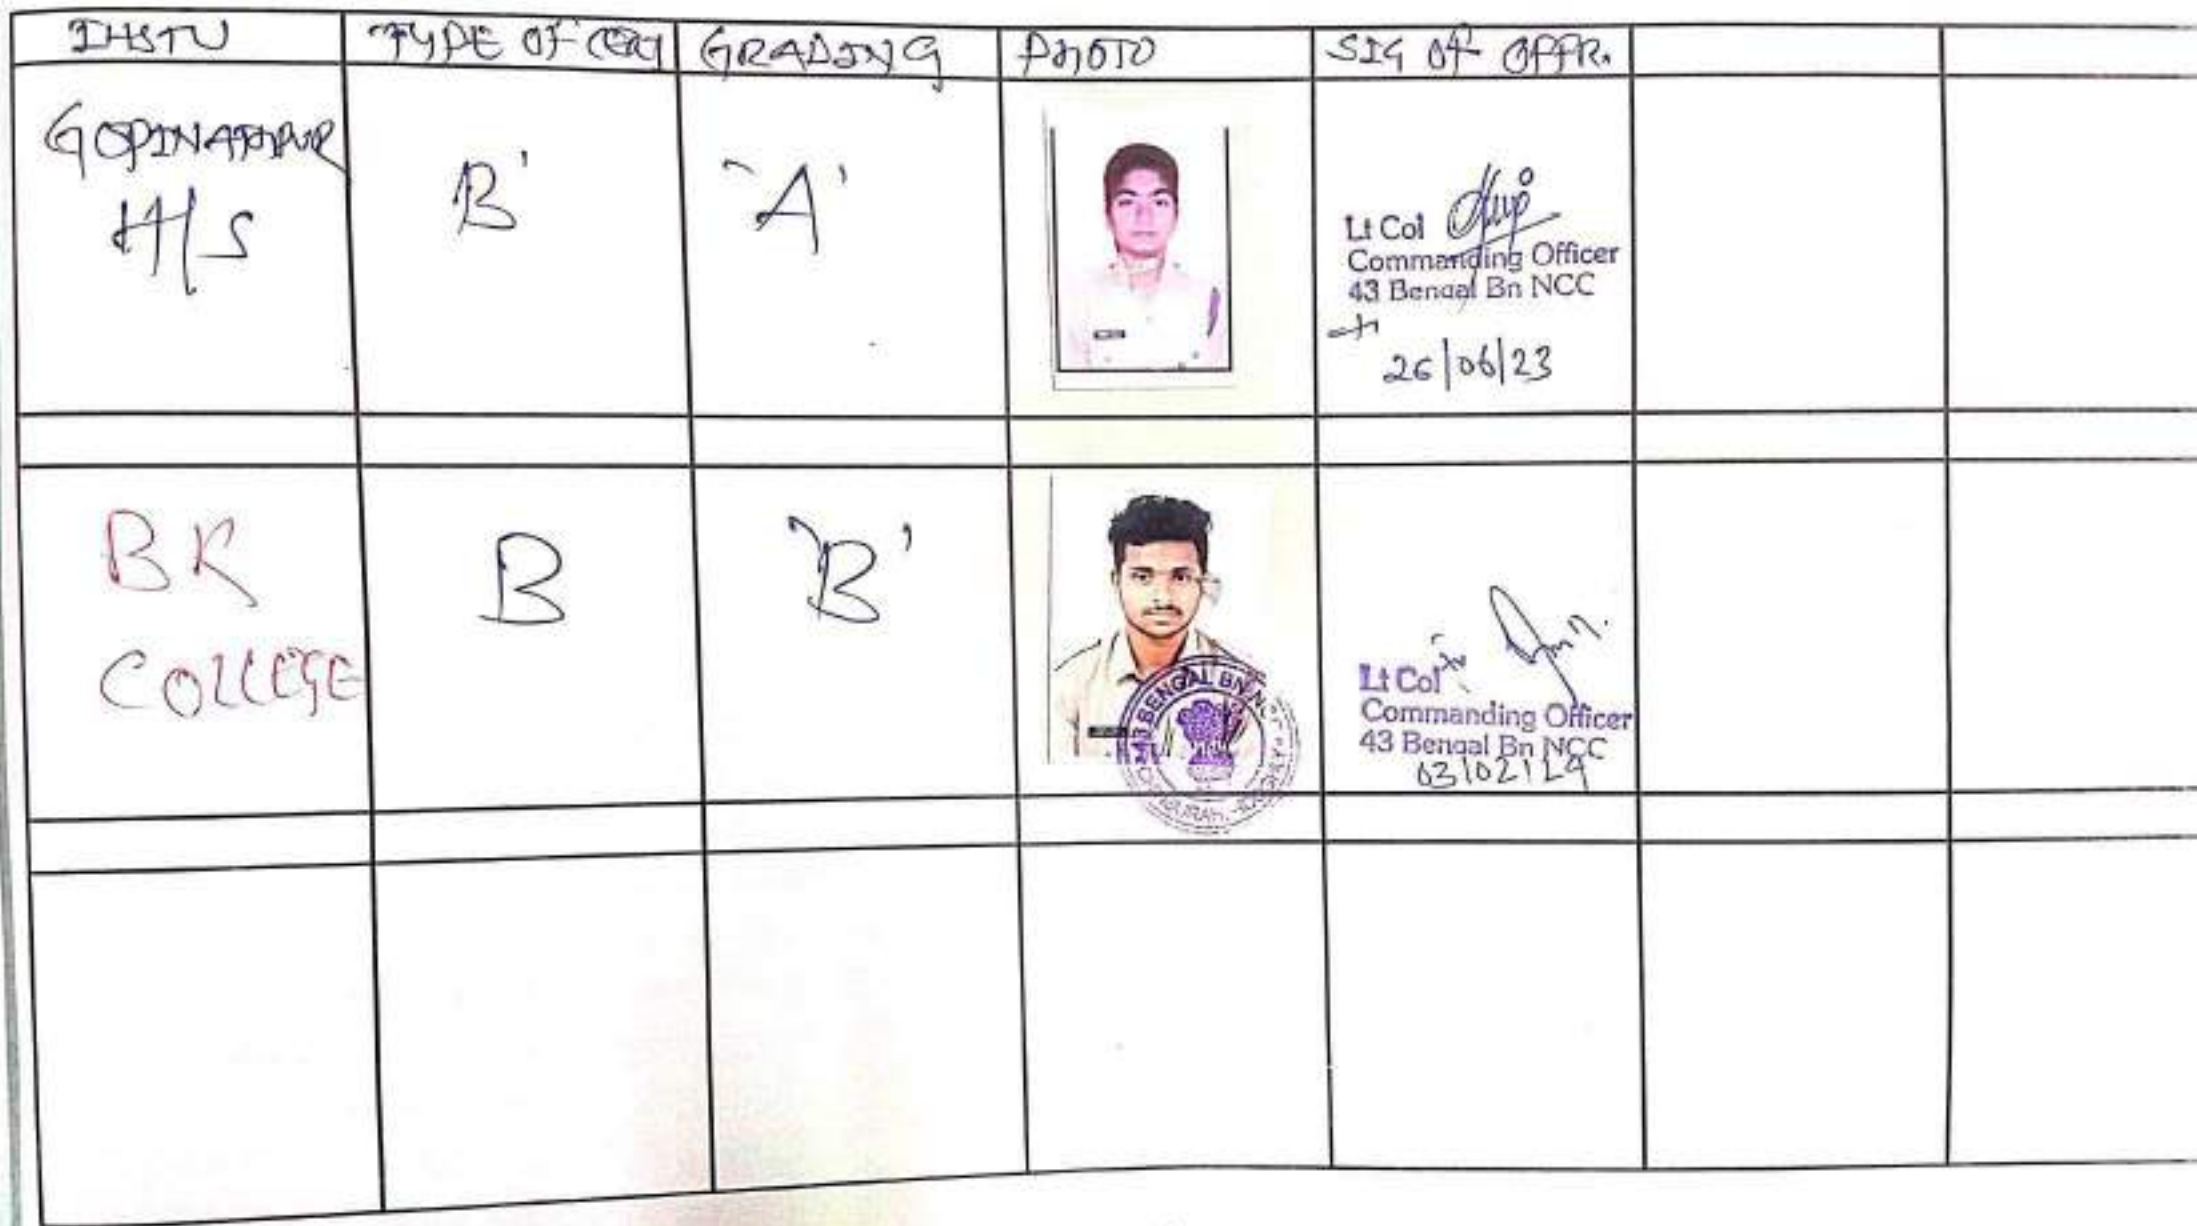 INSTU TYPE OF CERT GRADING PHOTO SIG OF OFFR.
GOPINATHPUR
H/S
B'
'A'
Lt Col
Commanding Officer
43 Bengal Bn NCC
26/06/23
BK
COLLEGE
B
'B'
43 BENGAL BN NCC
Lt Col
Commanding Officer
43 Bengal Bn NCC
03/02/24